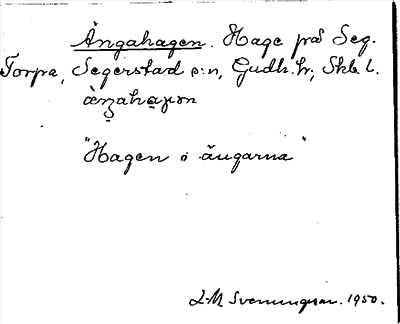 Ängahagen. Hage på Seg.
Torpa, Segerstad s:n, Gudh. hr; Skb. l.
"Hagen i ängarna"
L-M Svenungsson. 1950.